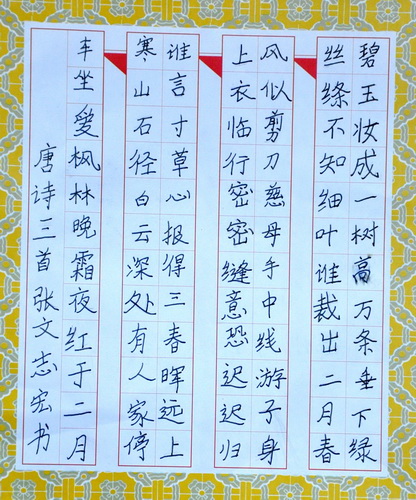 碧玉妆成一树高万条垂下绿
丝绦不知细叶谁裁出二月春
风似剪刀慈母手中线游子身
上衣临行密密缝意恐迟迟归
谁言寸草心报得三春晖远上
寒山石径白云深处有人家停
车坐愛枫林晚霜夜红于二月
唐诗三首张文志宏书